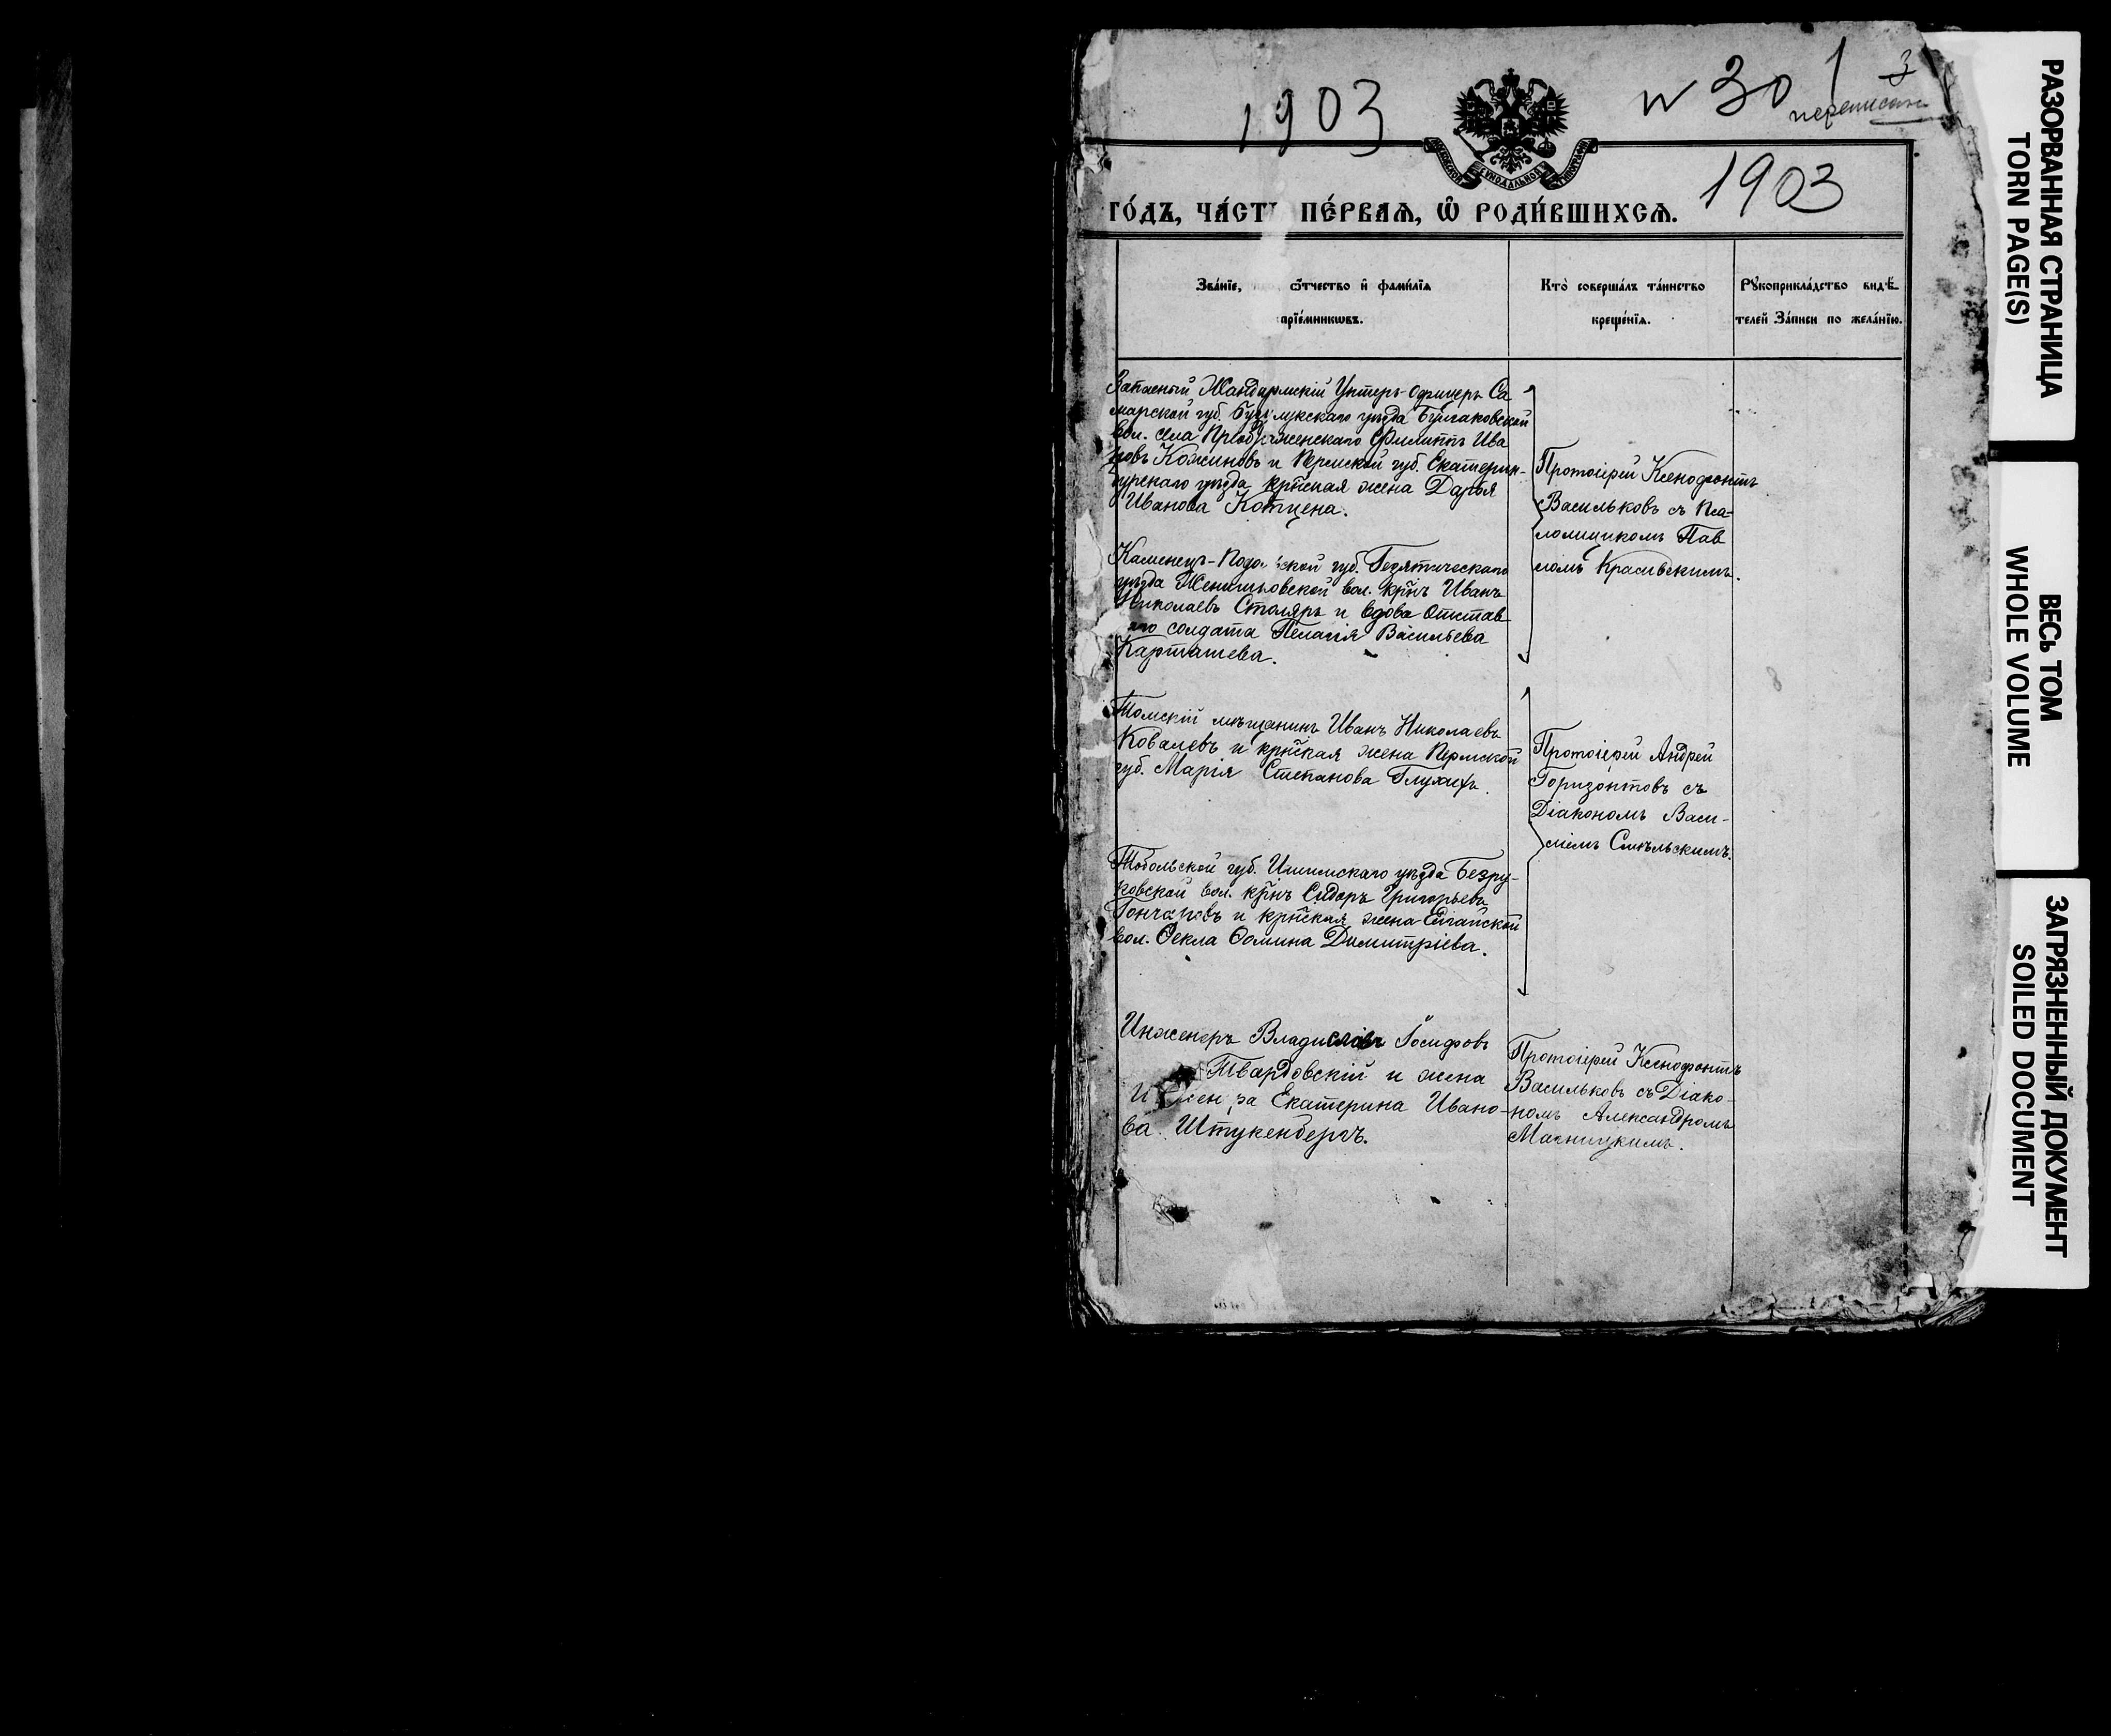 1903
N 30 1 3
переписан
МОСКОВСКОЙ СѴНОДАЛЬНОЙ ТИПОГРАФІИ
1903
ГО́ДЪ, ЧА́СТЬ ПЕ́РВАѦ, Ѽ РОДИ́ВШИХСѦ.
Зва́нїе, ѻ҆́тчество и҆ фами́лїѧ
прїе́мникѡвъ.
Кто̀ соверша́лъ та́инство
креще́нїѧ.
Рꙋкоприкла́дство видѣ́-
телей за́писи по жела́нїю.
Запасный Жандармскій Унтеръ-Офицеръ Са
марской губ. Бузулукскаго уѣзда Булгаковской
вол. села Преображенскаго Филиппъ Ива
новъ Кожиновъ и Пермской губ. Екатерин-
бургскаго уѣзда кр҃нская жена Дарья
Иванова Коптцена.
Протоіерей Ксенофонтъ
Васильковъ съ Пса-
ломщикомъ Пав
ломъ Красивскимъ.
Каменецъ-Подольской губ.
уѣзда вол. кр҃нъ Иванъ
Николаевъ Столяръ и вдова отстав
наго солдата Пелагія Васильева
Карташева.
Томскій мѣщанинъ Иванъ Николаевъ
Ковалевъ и кр҃нская жена Пермской
губ. Марія Степанова Глухихъ.
Протоіерей Андрей
Горизонтовъ съ
Діакономъ Васи-
ліемъ Смѣльскимъ.
Тобольской губ. Ишимскаго уѣзда Безру-
ковской вол. кр҃нъ Сидоръ Григорьевъ
Гончаровъ и кр҃нская жена
вол. Ѳекла Ѳомина Димитріева.
Инженеръ Владиславъ Іосифовъ
Твардовскій и жена
Инженера Екатерина Ивано-
ва Штукенбергъ.
Протоіерей Ксенофонтъ
Васильковъ съ Діако-
номъ Александромъ
Магницкимъ.
РАЗОРВАННАЯ СТРАНИЦА
TORN PAGE(S)
ВЕСЬ ТОМ
WHOLE VOLUME
ЗАГРЯЗНЕННЫЙ ДОКУМЕНТ
SOILED DOCUMENT